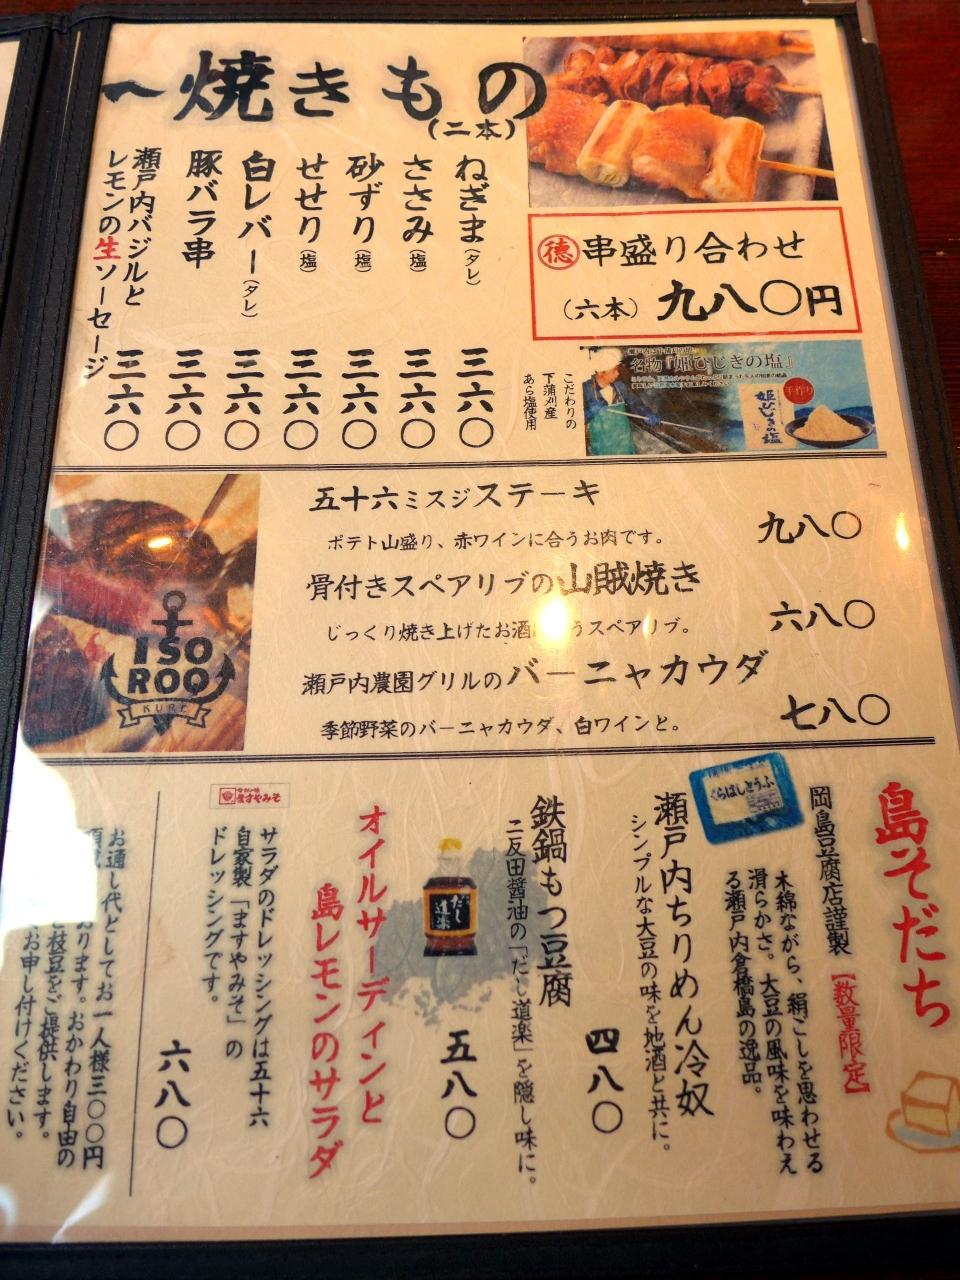 〜焼きもの
(二本)
ねぎま(タレ) 三六〇
ささみ(塩) 三六〇
砂ずり(塩) 三六〇
せせり(塩) 三六〇
白レバー(タレ) 三六〇
豚バラ串 三六〇
瀬戸内バジルと
レモンの生ソーセージ 三六〇
徳 串盛り合わせ
(六本) 九八〇円
こだわりの
下蒲刈産
あら塩使用
名物『姫ひじきの塩』
手作り
姫ひじきの塩
五十六ミスジステーキ
ポテト山盛り、赤ワインに合うお肉です。
九八〇
骨付きスペアリブの山賊焼き
じっくり焼き上げたお酒 うスペアリブ。
六八〇
瀬戸内農園グリルのバーニャカウダ
季節野菜のバーニャカウダ、白ワインと。
七八〇
ISO
ROO
KURE
島そだち
岡島豆腐店謹製【数量限定】
木綿ながら、絹ごしを思わせる
滑らかさ。大豆の風味を味わえ
る瀬戸内倉橋島の逸品。
くらはしとうふ
瀬戸内ちりめん冷奴
シンプルな大豆の味を地酒と共に。
四八〇
鉄鍋もつ豆腐
二反田醤油の「だし道楽」を隠し味に。
だし道楽
五八〇
オイルサーディンと
島レモンのサラダ
ますやみそ
サラダのドレッシングは五十六
自家製「ますやみそ」の
ドレッシングです。
六八〇
お通し代としてお一人様三〇〇円
おります。おかわり自由の
枝豆をご提供します。
お申し付けください。